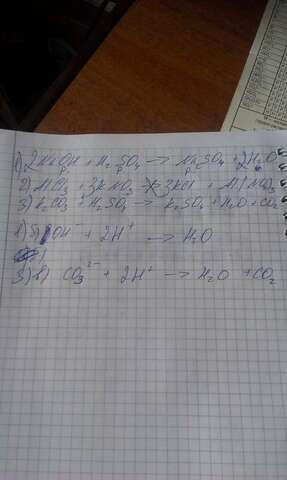 1) 2NaOH + H₂SO₄ → Na₂SO₄ + 2H₂O
р р р
2) AlCl₃ + 3KNO₃ ↛ 3KCl + Al(NO₃
3) K₂CO₃ + H₂SO₄ → K₂SO₄ + H₂O + CO₂
1) OH⁻ + 2H⁺ → H₂O
3) в) CO₃²⁻ + 2H⁺ → H₂O + CO₂